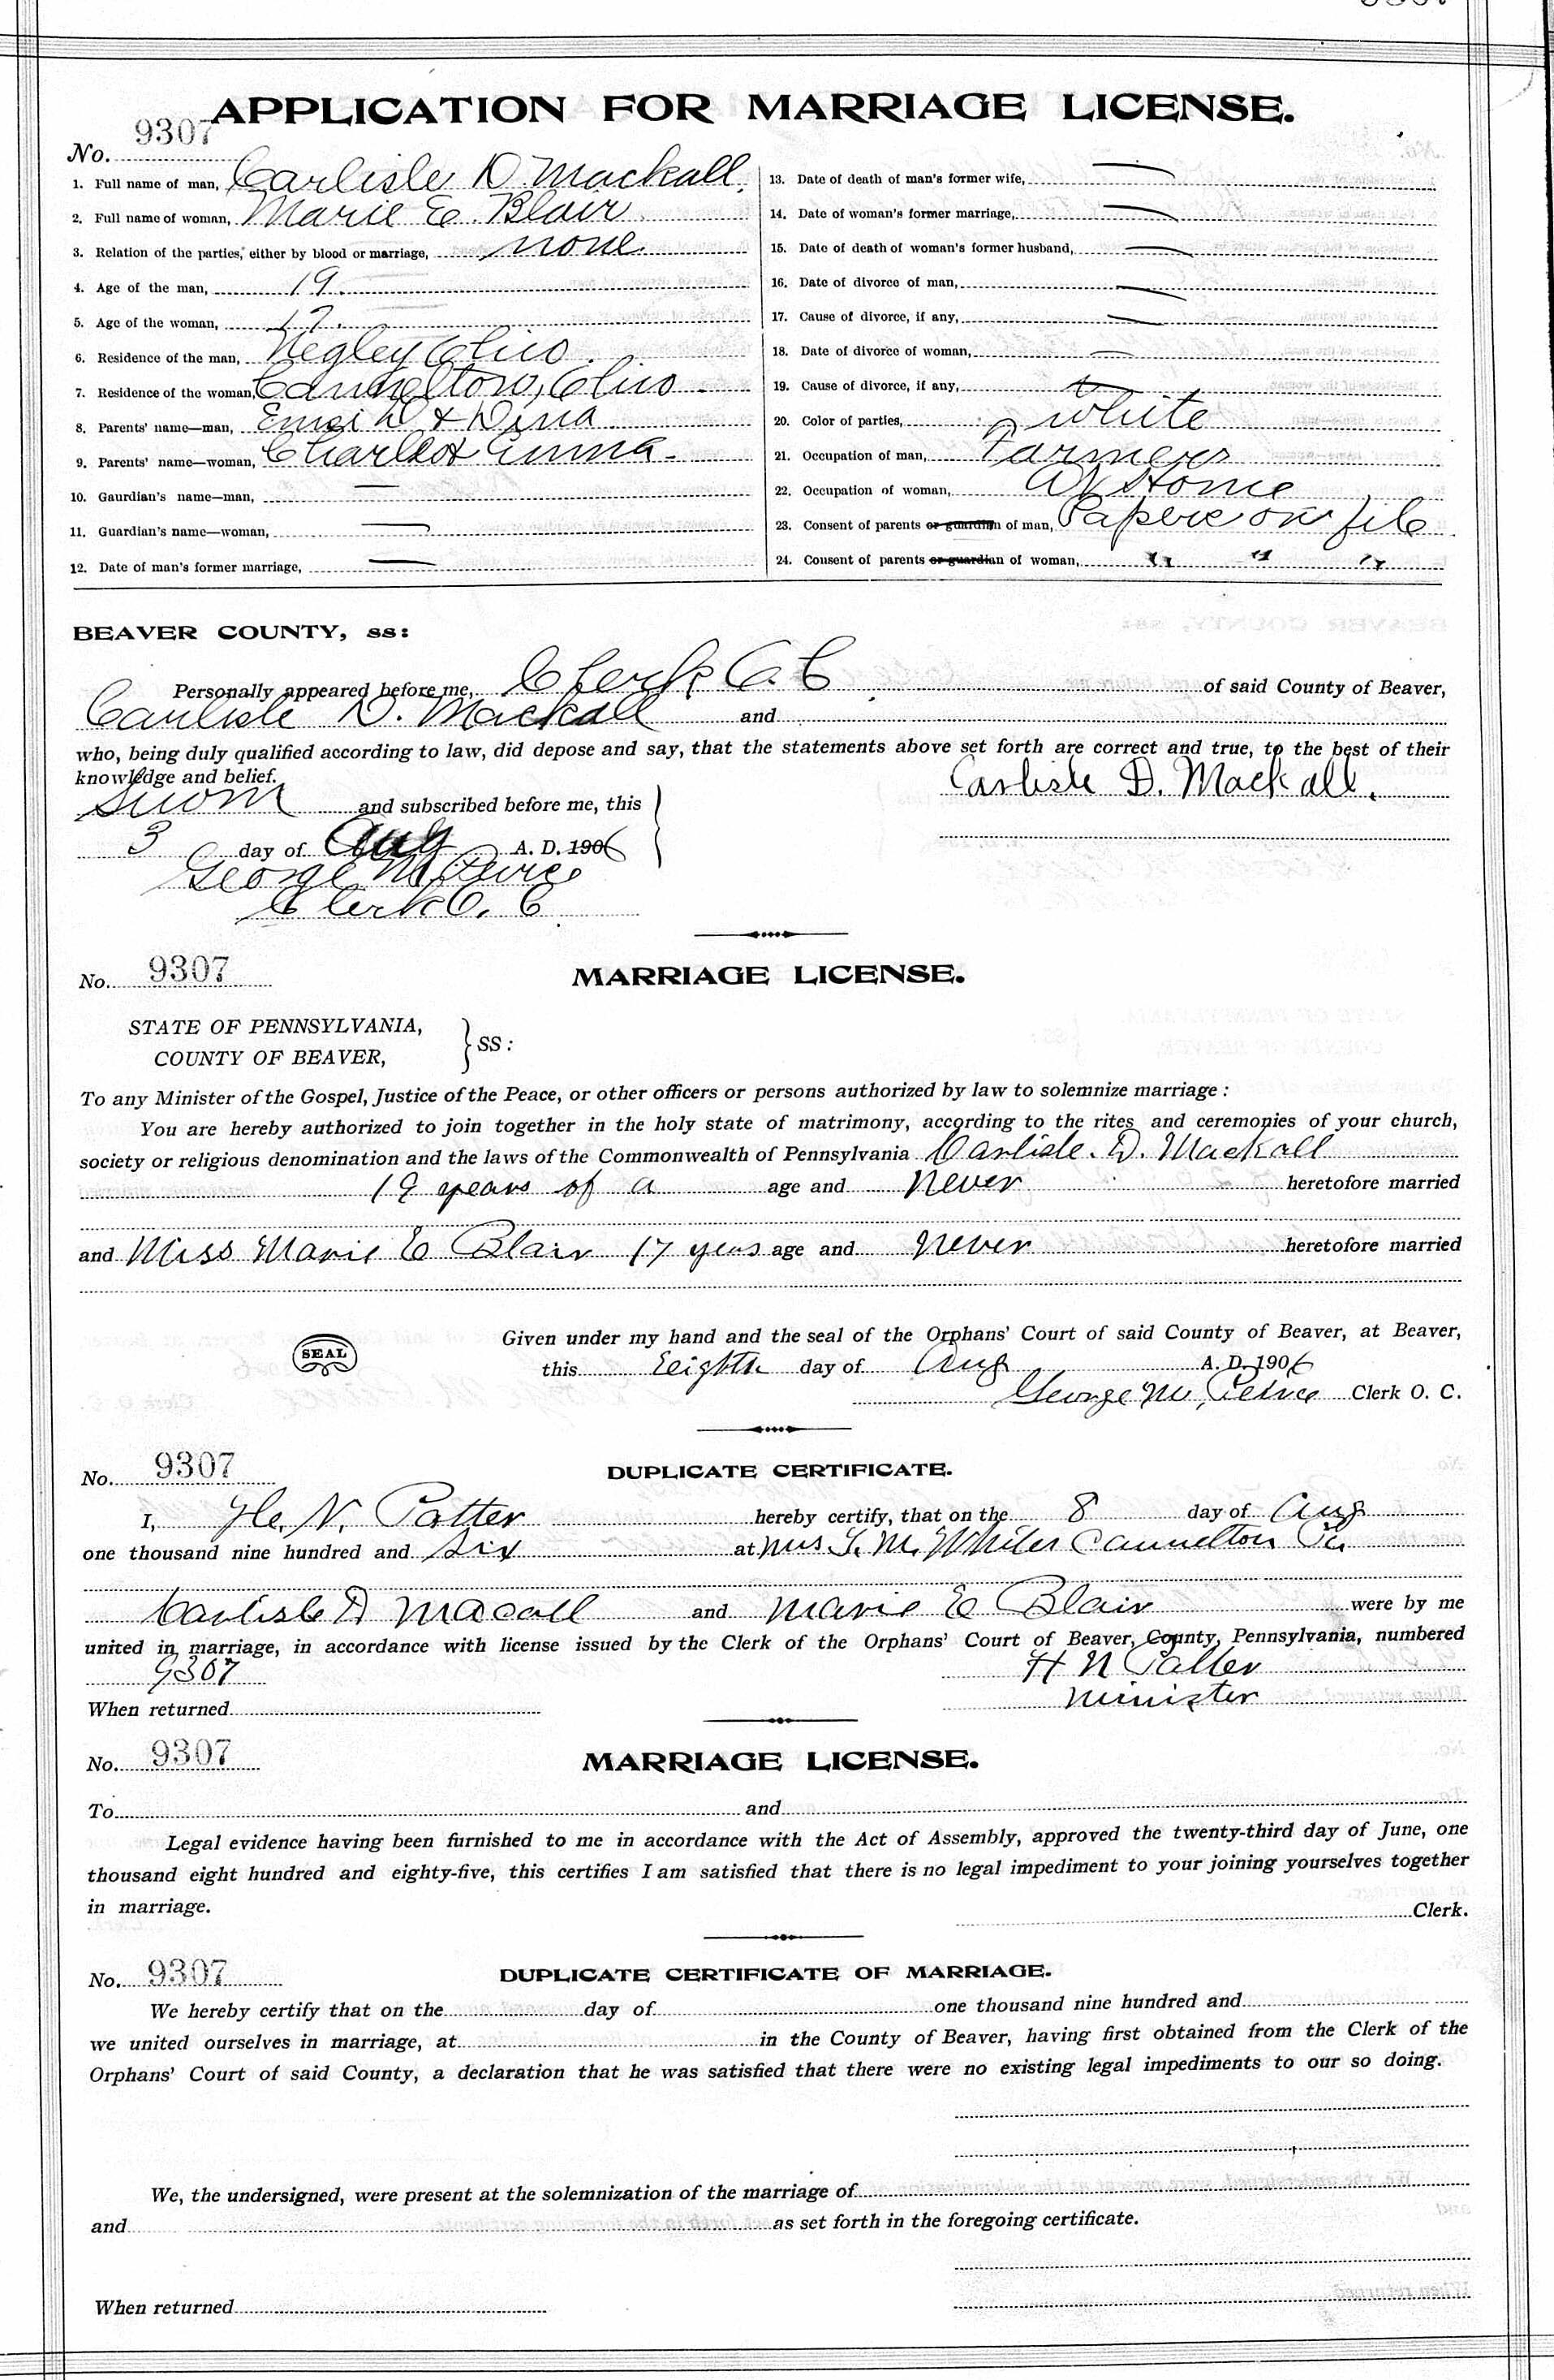 APPLICATION FOR MARRIAGE LICENSE.
No. 9307
1. Full name of man, Carlisle D Mackall.
2. Full name of woman, Marie E. Blair
3. Relation of the parties, either by blood or marriage, none
4. Age of the man, 19.
5. Age of the woman, 17.
6. Residence of the man, Negley Ohio.
7. Residence of the woman, Cannelton, Ohio
8. Parents' name—man, & Dina
9. Parents' name—woman, Charles & Emma
10. Gaurdian's name—man, —
11. Guardian's name—woman, —
12. Date of man's former marriage, —
13. Date of death of man's former wife, —
14. Date of woman's former marriage, —
15. Date of death of woman's former husband, —
16. Date of divorce of man, —
17. Cause of divorce, if any, —
18. Date of divorce of woman, —
19. Cause of divorce, if any, —
20. Color of parties, White
21. Occupation of man, Farmer
22. Occupation of woman, At Home
23. Consent of parents or guardian of man, Papers on file
24. Consent of parents or guardian of woman, " " "
BEAVER COUNTY, ss:
Personally appeared before me, Clerk O. C. of said County of Beaver,
Carlisle D. Mackall and
who, being duly qualified according to law, did depose and say, that the statements above set forth are correct and true, to the best of their
knowledge and belief.
Carlisle D. Mackall.
Sworn and subscribed before me, this
3 day of Aug A. D. 1906
George M. Peirce
Clerk O. C
No. 9307
MARRIAGE LICENSE.
STATE OF PENNSYLVANIA,
COUNTY OF BEAVER, } SS:
To any Minister of the Gospel, Justice of the Peace, or other officers or persons authorized by law to solemnize marriage:
You are hereby authorized to join together in the holy state of matrimony, according to the rites and ceremonies of your church,
society or religious denomination and the laws of the Commonwealth of Pennsylvania Carlisle. D. Mackall
19 years of a age and Never heretofore married
and Miss Marie E Blair 17 years age and never heretofore married
SEAL
Given under my hand and the seal of the Orphans' Court of said County of Beaver, at Beaver,
this Eighth day of Aug A. D. 1906
George M. Peirce Clerk O. C.
No. 9307
DUPLICATE CERTIFICATE.
I, H. N. Potter hereby certify, that on the 8 day of Aug
one thousand nine hundred and six at Mrs Cannelton Pa
Carlisle D Macall and Marie E Blair were by me
united in marriage, in accordance with license issued by the Clerk of the Orphans' Court of Beaver, County, Pennsylvania, numbered
9307
H N Potter
Minister
When returned
No. 9307
MARRIAGE LICENSE.
To and
Legal evidence having been furnished to me in accordance with the Act of Assembly, approved the twenty-third day of June, one
thousand eight hundred and eighty-five, this certifies I am satisfied that there is no legal impediment to your joining yourselves together
in marriage.
Clerk.
No. 9307
DUPLICATE CERTIFICATE OF MARRIAGE.
We hereby certify that on the day of one thousand nine hundred and
we united ourselves in marriage, at in the County of Beaver, having first obtained from the Clerk of the
Orphans' Court of said County, a declaration that he was satisfied that there were no existing legal impediments to our so doing.
We, the undersigned, were present at the solemnization of the marriage of
and as set forth in the foregoing certificate.
When returned